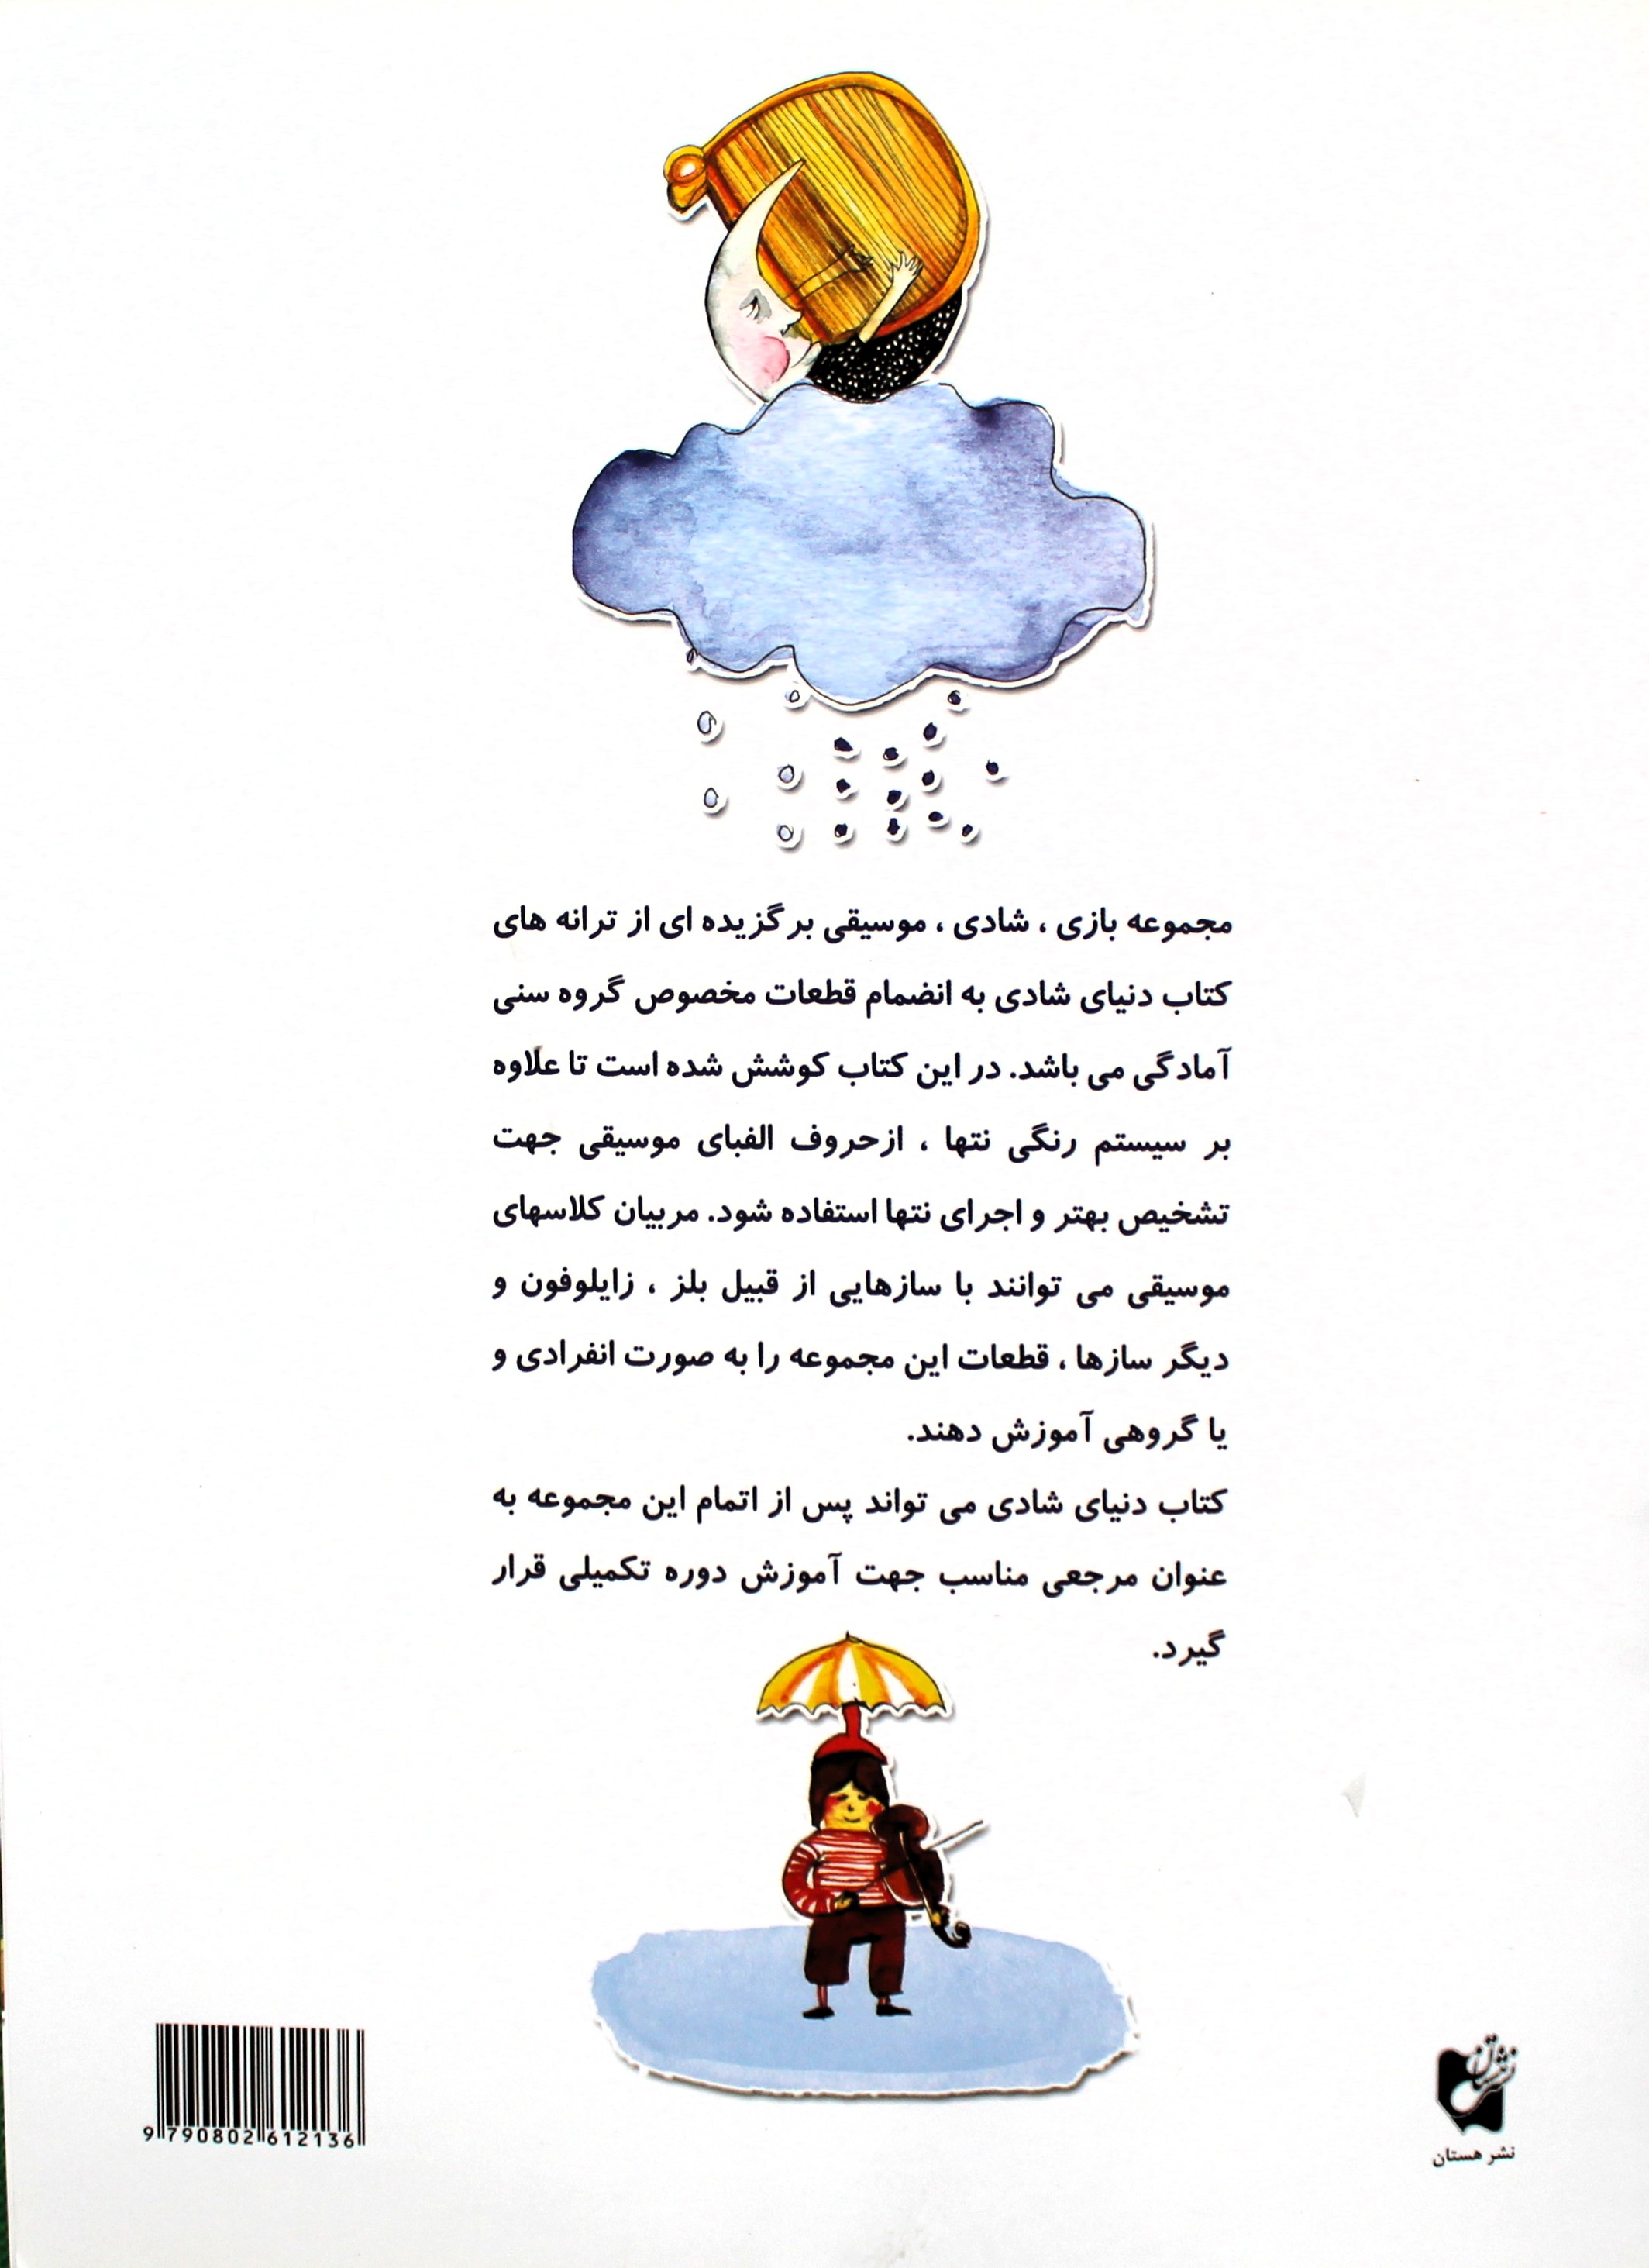 مجموعه بازی ، شادی ، موسیقی برگزیده ای از ترانه های
کتاب دنیای شادی به انضمام قطعات مخصوص گروه سنی
آمادگی می باشد. در این کتاب کوشش شده است تا علاوه
بر سیستم رنگی نتها ، ازحروف الفبای موسیقی جهت
تشخیص بهتر و اجرای نتها استفاده شود. مربیان کلاسهای
موسیقی می توانند با سازهایی از قبیل بلز ، زایلوفون و
دیگر سازها ، قطعات این مجموعه را به صورت انفرادی و
یا گروهی آموزش دهند.
کتاب دنیای شادی می تواند پس از اتمام این مجموعه به
عنوان مرجعی مناسب جهت آموزش دوره تکمیلی قرار
گیرد.
9 790802 612136
نشر هستان